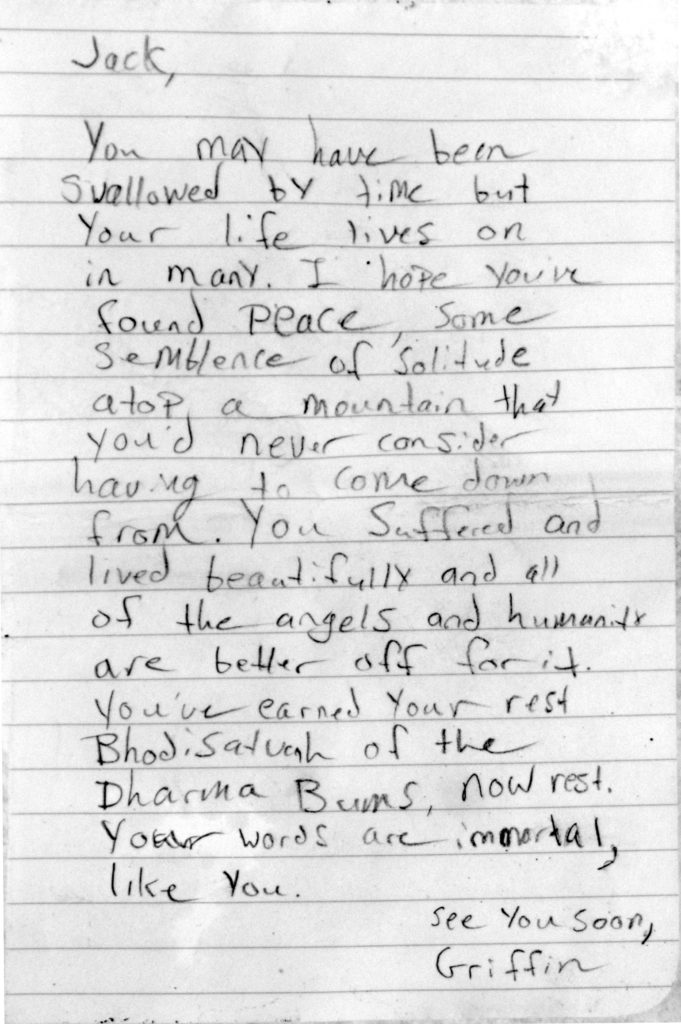 Jack,
You may have been
swallowed by time but
your life lives on
in many. I hope you've
found peace, some
semblence of solitude
atop a mountain that
you'd never consider
having to come down
from. You suffered and
lived beautifully and all
of the angels and humanity
are better off for it.
You've earned your rest
Bhodisatvah of the
Dharma Bums, now rest.
Your words are immortal,
like you.
See you soon,
Griffin